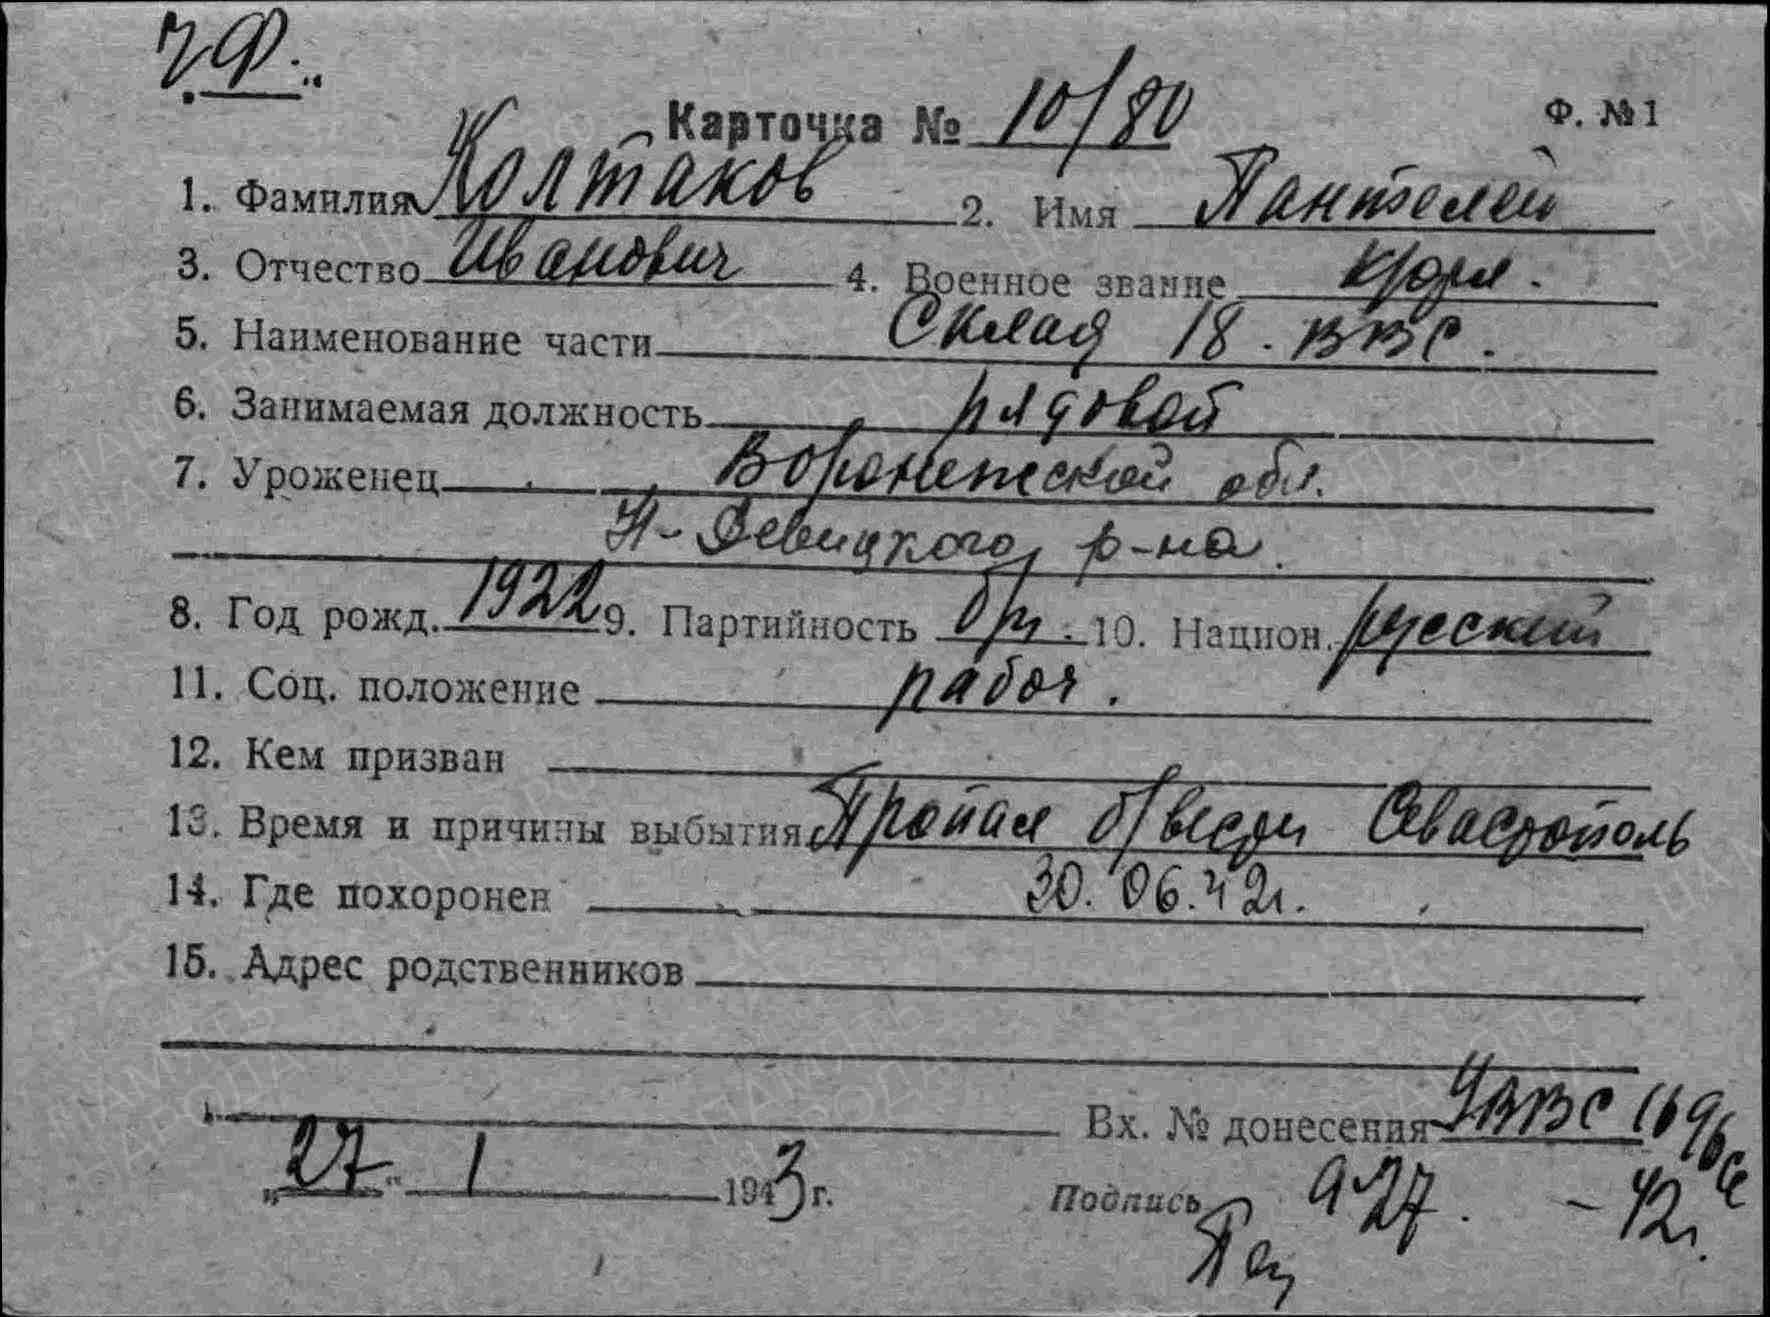 Ч.Ф.
Карточка № 10/80 Ф. №1
1. Фамилия Колтаков 2. Имя Пантелей
3. Отчество Иванович 4. Военное звание кр/фл.
5. Наименование части Склад 18. ВВС.
6. Занимаемая должность рядовой
7. Уроженец Воронежской обл.
Н-Девицкого р-на.
8. Год рожд. 1922 9. Партийность б/п. 10. Национ. русский
11. Соц. положение рабоч.
12. Кем призван
13. Время и причины выбытия Пропал б/вести Севастополь
14. Где похоронен 30.06.42г.
15. Адрес родственников
Вх. № донесения УВВС 1696с
„27" 1 1943 г. Подпись 927. - 42г.